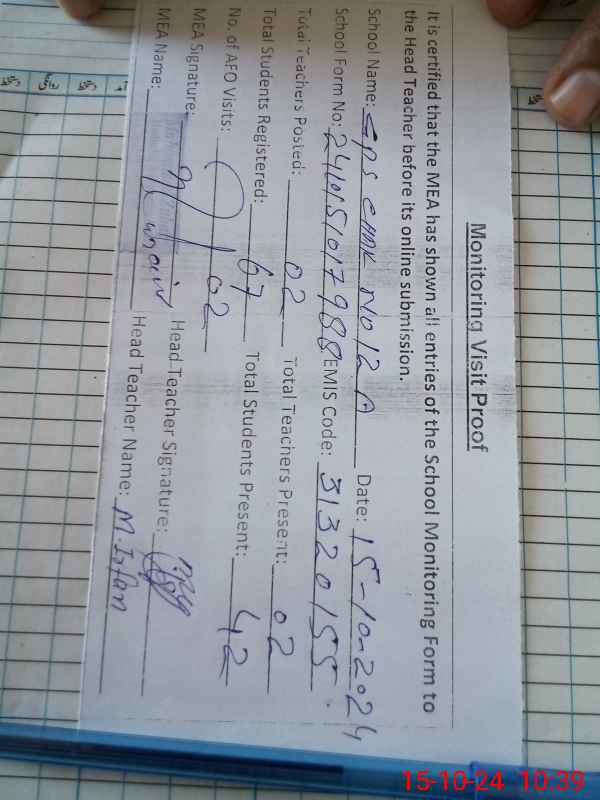 Monitoring Visit Proof
It is certified that the MEA has shown all entries of the School Monitoring Form to
the Head Teacher before its online submission.
School Name: GPS CHAK NO 12 A Date: 15-10-2024
School Form No: EMIS Code: 31320155
Total Teachers Posted: 02 Total Teachers Present: 02
Total Students Registered: 67 Total Students Present: 42
No. of AFO Visits: 02
MEA Signature: Head Teacher Signature:
MEA Name: Head Teacher Name: M. Irfan
15-10-24 10:39